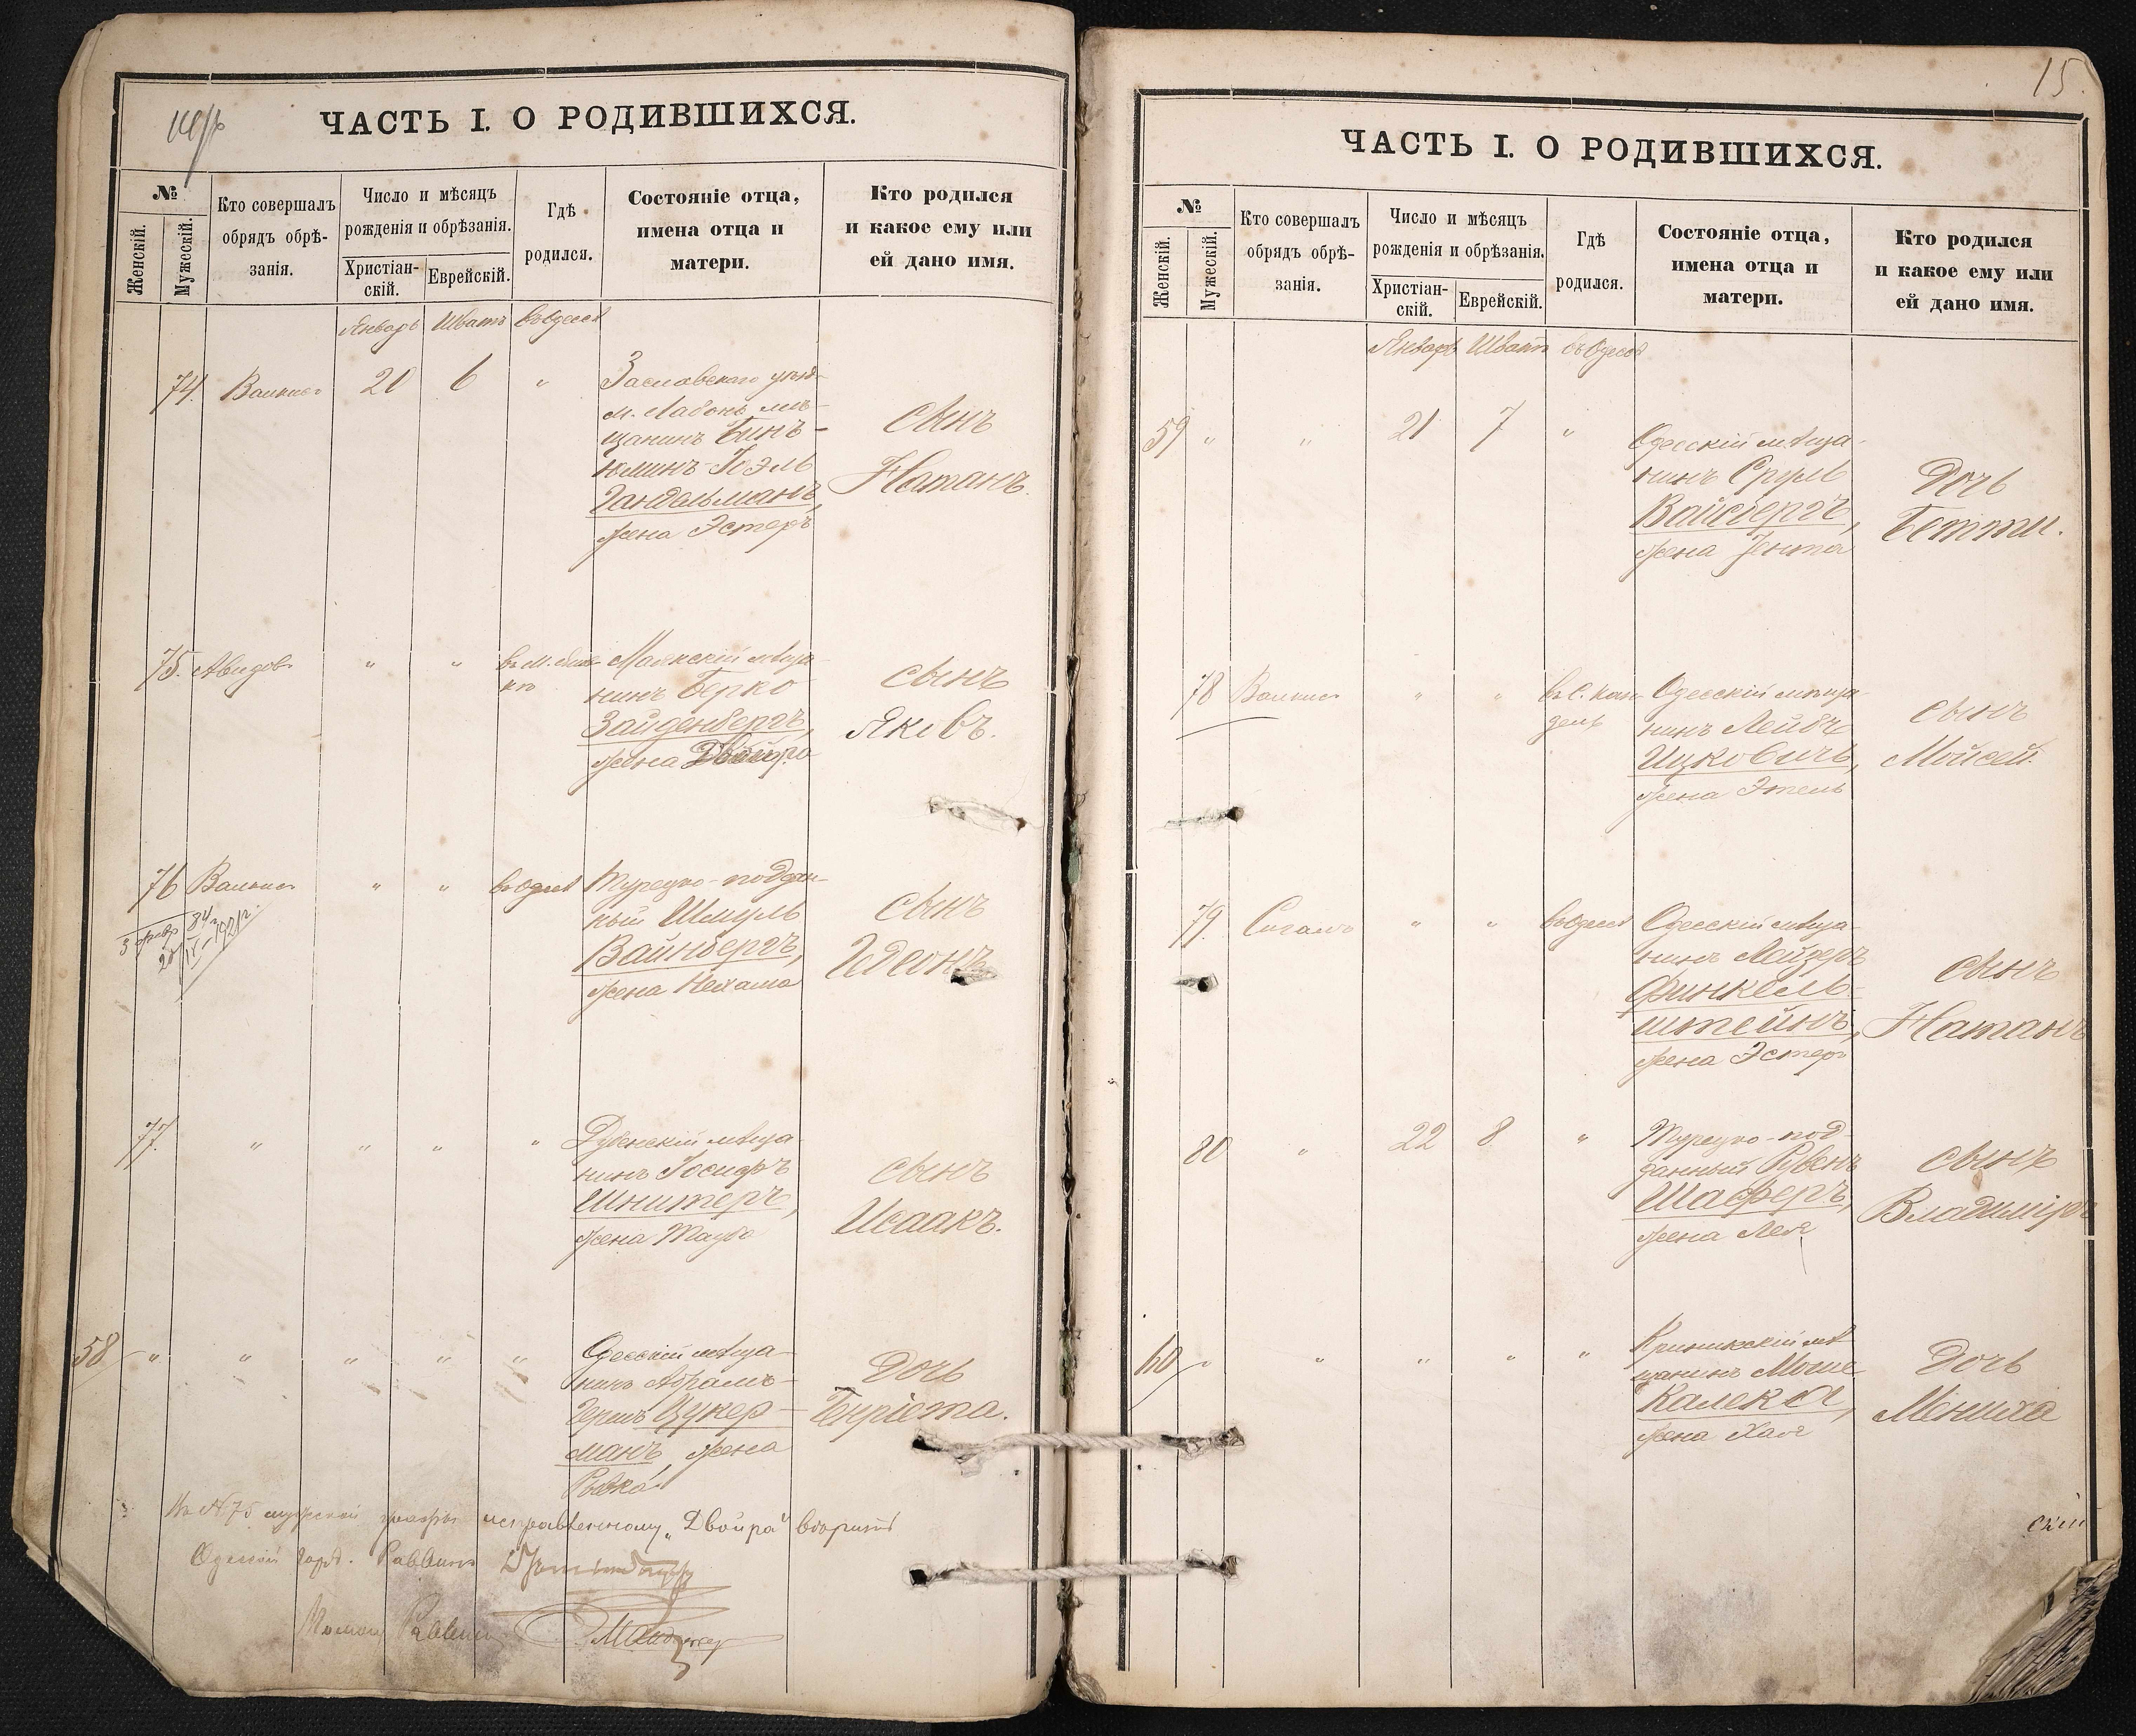 ЧАСТЬ I. О РОДИВШИХСЯ.
№
Женскій.
Мужескій.
Кто совершалъ
обрядъ обрѣ-
занія.
Число и мѣсяцъ
рожденія и обрѣзанія.
Христіан-
скій.
Еврейскій.
Гдѣ
родился.
Состояніе отца,
имена отца и
матери.
Кто родился
и какое ему или
ей дано имя.
Январь Шватъ въ Одессѣ
74. 20 6 "
Заславскаго уѣзд.
м. Лабонь мѣ-
щанинъ Бинъ-
юминъ-Іоэль
Гандельманъ,
жена Эстеръ
сынъ
Натанъ.
75. Авидов " "
Маякскій мѣща-
нинъ Берко
Зайденбергъ,
жена Двойра
сынъ
Яковъ.
76 " " въ Одессѣ
Турецко-поддан-
ный Шмуль
Вайнбергъ,
жена Нехама
сынъ
Гдеонъ
77. " " " "
Дубенскій мѣща-
нинъ Іосифъ
Шнитеръ,
жена Тауба
сынъ
Исаакъ.
58 " " " " "
Одесскій мѣща-
нинъ Абрамъ-
Гершъ Цукер-
манъ, жена
Ривка
Дочь
Генріета.
Въ № 75 мужской графы исправленному "Двойра" вѣрить
Одесскій Город. Раввинъ
Раввина
15.
ЧАСТЬ I. О РОДИВШИХСЯ.
№
Женскій.
Мужескій.
Кто совершалъ
обрядъ обрѣ-
занія.
Число и мѣсяцъ
рожденія и обрѣзанія.
Христіан-
скій.
Еврейскій.
Гдѣ
родился.
Состояніе отца,
имена отца и
матери.
Кто родился
и какое ему или
ей дано имя.
Январь Шватъ въ Одессѣ
59 " " 21 7 "
Одесскій мѣща-
нинъ Сруль
Вайсбергъ,
жена Ента
Дочь
Бетти.
78 " "
Одесскій мѣща-
нинъ Лейбъ
Ицковичъ,
жена Этель
сынъ
Мойсей.
79. " " въ Одессѣ
Одесскій мѣща-
нинъ Лейзеръ
Финкель-
штейнъ,
жена Эстеръ
сынъ
Натанъ
80 " 22 8 "
Турецко-под-
данный Рувенъ
Шаферъ,
жена Лея
сынъ
Владиміръ
60 " " " " "
мѣ-
щанинъ Моше
Калека,
жена Хая
Дочь
Мениха
скій